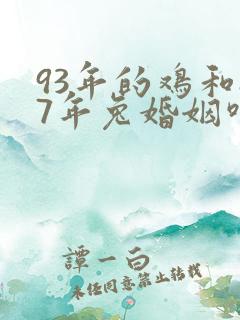 93年的鸡和
7年兔婚姻
譚一白
未经同意禁止转载